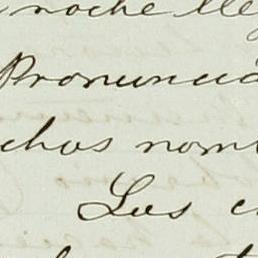 noche lle
Pronuncia
chos nom
Los c